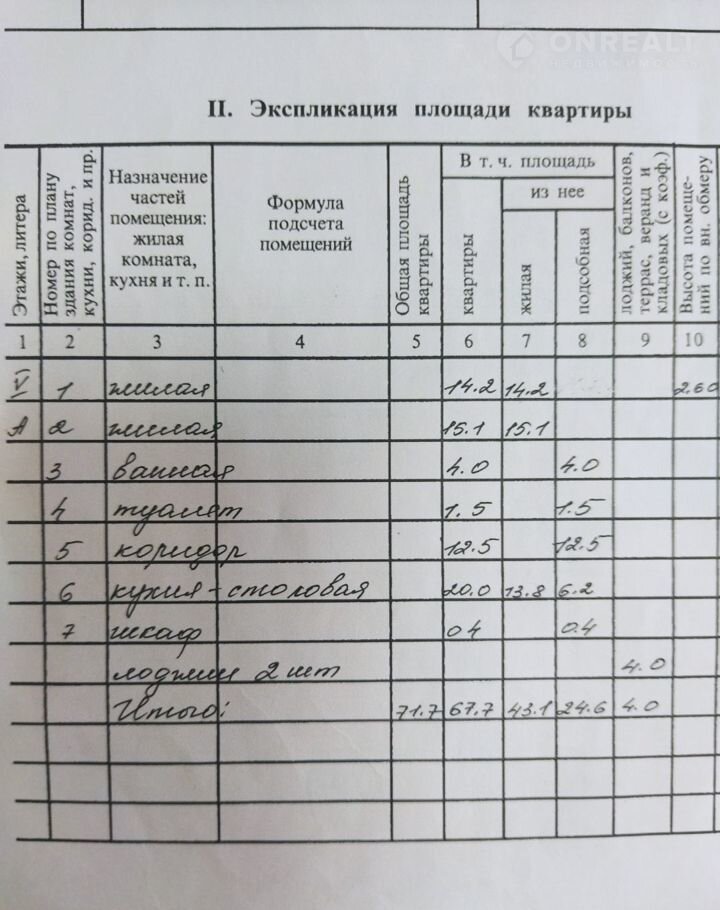 ONREALT
недвижимость
II. Экспликация площади квартиры
Этажи, литера
Номер по плану
здания комнат,
кухни, корид. и пр.
Назначение
частей
помещения:
жилая
комната,
кухня и т. п.
Формула
подсчета
помещений
Общая площадь
квартиры
В т. ч. площадь
квартиры
из нее
жилая
подсобная
лоджий, балконов,
террас, веранд и
кладовых (с коэф.)
Высота помеще-
ний по вн. обмеру
1 2 3 4 5 6 7 8 9 10
V 1 жилая 14.2 14.2 2.60
А 2 жилая 15.1 15.1
3 ванная 4.0 4.0
4 туалет 1.5 1.5
5 коридор 12.5 12.5
6 кухня-столовая 20.0 13.8 6.2
7 шкаф 04 0.4
лоджии 2 шт 4.0
Итого: 71.7 67.7 43.1 24.6 4.0